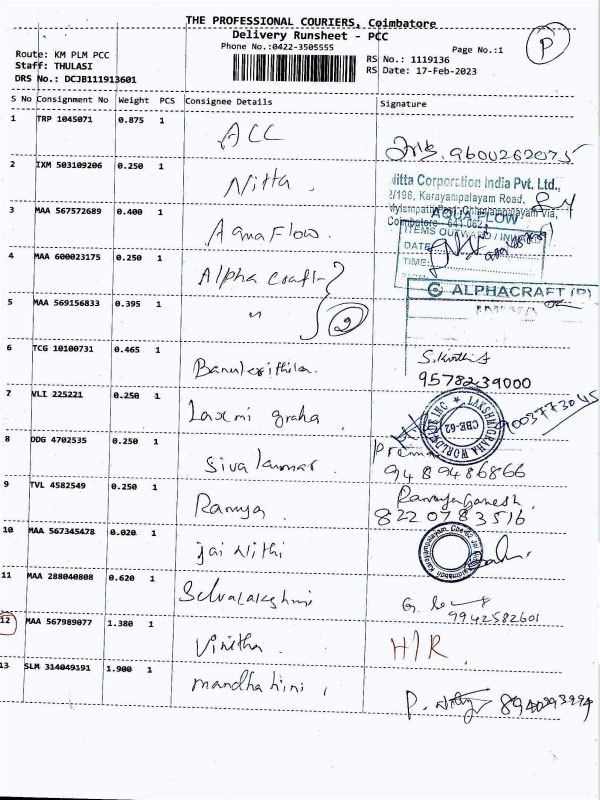 THE PROFESSIONAL COURIERS, Coimbatore
Delivery Runsheet - PCC
P
Phone No.:0422-3505555
Page No.:1
Route: KM PLM PCC
Staff: THULASI
DRS No.: DCJB111913601
RS No.: 1119136
RS Date: 17-Feb-2023
S No Consignment No Weight PCS Consignee Details Signature
1 TRP 1045071 0.875 1 ACC 9600262075
2 IXM 503109206 0.250 1 Nitta
Nitta Corporation India Pvt. Ltd.,
2/196, Karayampalayam Road,
Coimbatore - 641 062
3 MAA 567572689 0.400 1 Aqua Flow
AQUA FLOW
ITEMS OUTWARD / INWARD
DATE:
TIME:
4 MAA 600023175 0.250 1 Alpha craft
ALPHACRAFT (P)
5 MAA 569156833 0.395 1 " 2
6 TCG 10100731 0.465 1 9578239000
7 VLI 225221 0.250 1 Laxmi graha 9003773045
LAKSHMIGRAHA WORLDWIDE INC
CBE-62
8 DDG 4702535 0.250 1 Siva kumar Prema
9489486866
9 TVL 4582549 0.250 1 Ramya Ramya Ganesh
8220783516
10 MAA 567345478 0.020 1 jai Nithi
11 MAA 288040808 0.620 1 Selvalakshmi
9942582601
12 MAA 567989077 1.380 1 Vinitha H/R
13 SLM 314049191 1.900 1 mandhahini 8940293994